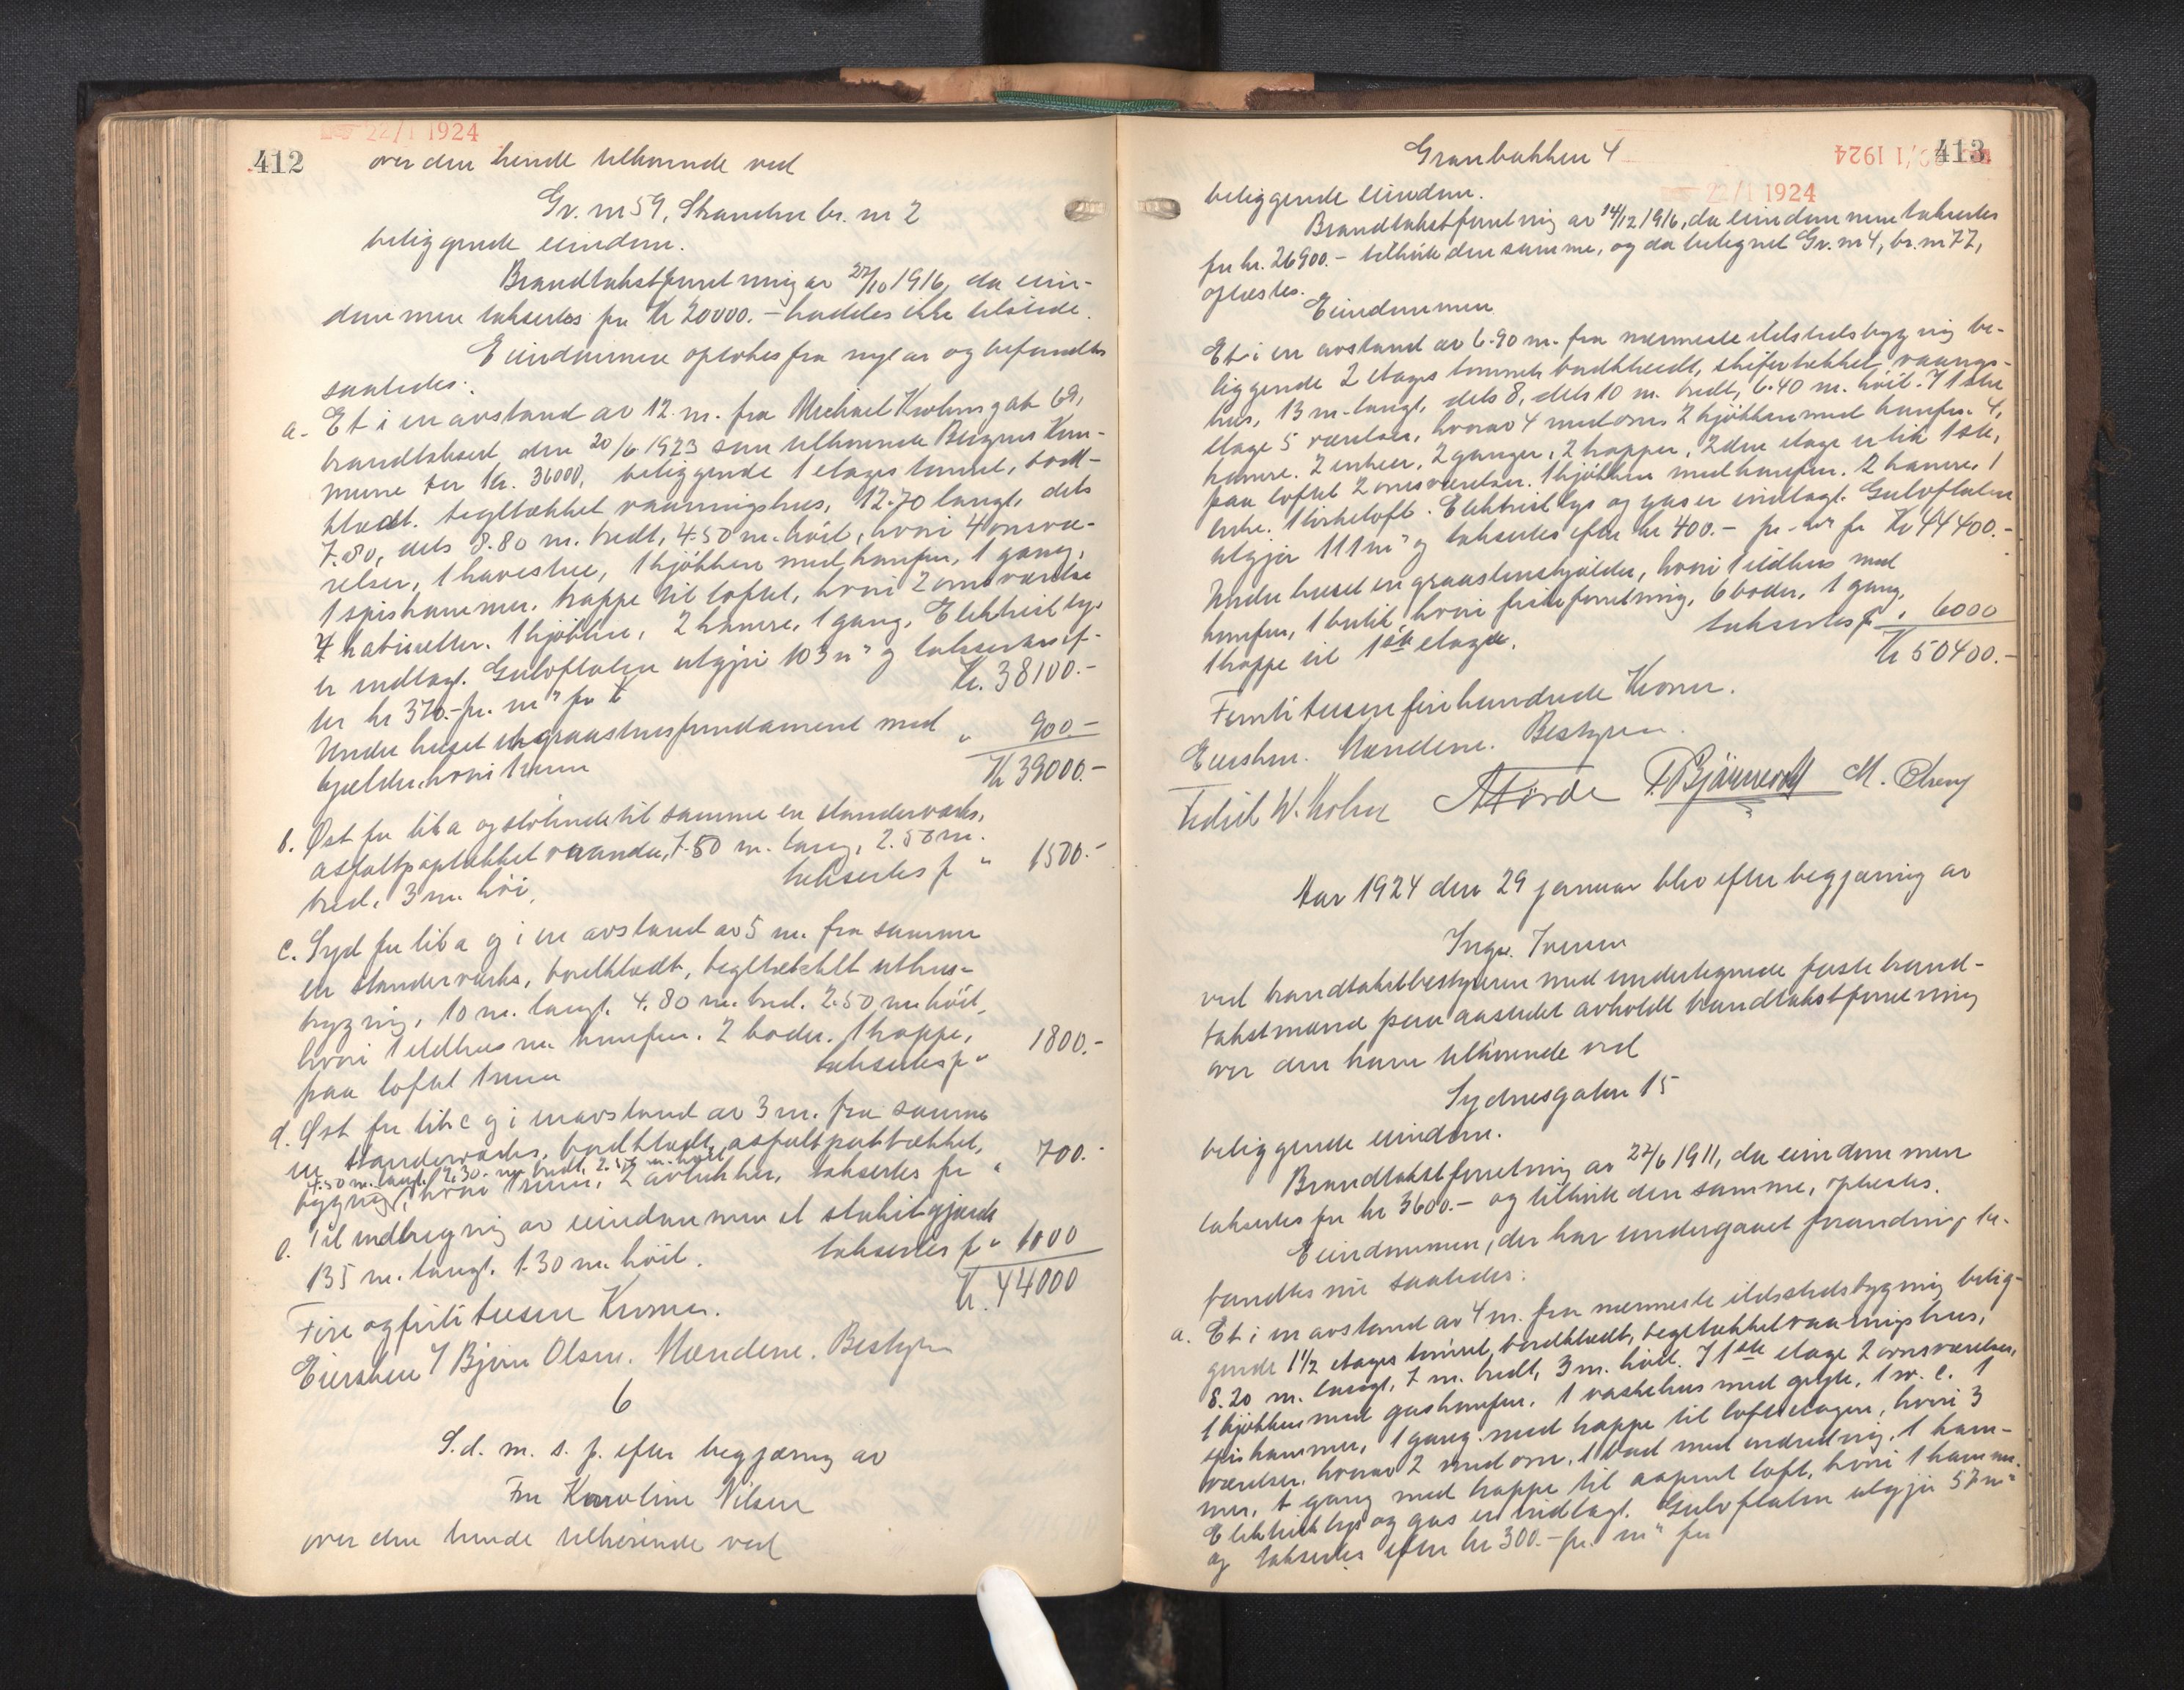 22/1 1924
412
over den hende tilhørende ved
Gr. nr 59, Stranden br. nr 2
beliggende eiendom.
Brandtakstforretning av 27/10 1916, da eien-
dommen taksertes for Kr 20000.- haddes ikke tilstede.
Eiendommen optokes fra nyt av og befandtes
saaledes:
a. Et i en avstand av 12 m. fra Michael Krohnsgate 69,
brandtaksert den 20/6 1923 som tilhørende Bergens Kom-
mune for Kr. 36000, beliggende 1 etages tømret, bord-
klædt, tegltækket vaaningshus, 12.70 langt, dels
7.80, dels 8.80 m. bredt, 4.50 m. høit, hvori 4 ovnsvæ-
relser, 1 havestue, 1 kjøkken med komfur, 1 gang,
1 spiskammer, trappe til loftet, hvori 2 ovnsværelse
4 kabinetter. 1 kjøkken, 2 kamre, 1 gang. Elektrisk lys
er indlagt. Gulvflaten utgjør 103 m² og taksertes ef-
ter kr 370.- pr. m² for Kr. 38100.-
Under huset en graastensfundament med
kjelder, hvori 1 rum " 900.-
Kr 39000.-
b. Øst for lit a og støtende til samme en standerværks,
asfaltpaptækket veranda, 7.50 m. lang, 2.50 m.
bred, 3 m. høi, taksertes f " 1500.-
c. Syd for lit a og i en avstand av 5 m. fra samme
en standerværks, bordklædt, tegltækket uthus-
bygning, 10 m. langt. 4.80 m. bred. 2.50 m høit,
hvori 1 ildhus m. komfur. 2 boder. 1 trappe,
paa loftet 1 rum taksertes f " 1800.-
d. Øst for lit c og i en avstand av 3 m. fra samme
en standerværks, bordklædt, asfaltpaptækket,
7.50 m. langt, 2.30 m. bredt, 2.50 m. høit,
bygning, hvori 1 rum, 2 avlukker, taksertes for " 700.-
e. Til indhegning av eiendommen et stakitgjærde
135 m. langt. 1.30 m. høit. taksertes f " 1000
Kr. 44000
Fire og firti tusen Kroner.
Eiersken v/ Bjørn Olsen. Mændene. Bestyren
6
S. d. m. s. f. efter begjæring av
Fru Karoline Nilsen
over den hende tilhørende ved
413
22/1 1924
22/1 1924
Granbakken 4
beliggende eiendom.
Brandtakstforretning av 14/12 1916, da eiendommen taksertes
for kr. 26900.- tilhørte den samme, og da betegnet Gr. nr 4, br. nr 77,
oplæstes.
Eiendommen
Et i en avstand av 6.90 m. fra nærmeste ildstedsbygning be-
liggende 2 etages tømret, bordklædt, skifertækket vaanings-
hus, 13 m. langt, dels 8, dels 10 m. bredt, 6.40 m. høit. I 1ste
etage 5 værelser, hvorav 4 med ovn. 2 kjøkken med komfur. 4,
kamre. 2 entreer, 2 ganger, 2 trapper, 2den etage er lik 1ste,
paa loftet 2 ovnsværelser. 1 kjøkken med komfur. 2 kamre. 1
entre. 1 tørkeloft. Elektrisk lys og gas er indlagt. Gulvflaten
utgjør 111 m² og taksertes efter kr 400.- pr. m² for Kr 44400.-
Under huset en graastenskjelder, hvori 1 ildhus med
komfur, 1 butik, hvori forretning, 6 boder, 1 gang,
1 trappe til 1ste etage. taksertes f " 6000
Kr 50400.-
Femti tusen fire hundrede Kroner.
Eiersken. Mændene. Bestyren.
Fredrik W. Holm A Førde F. Bjørnevold M. Olsen
Aar 1924 den 29 januar blev efter begjæring av
Ingv. Iversen
ved brandtakstbestyreren med undertegnede faste brand-
takstmænd paa aastedet avholdt brandtakstforretning
over den ham tilhørende ved
Sydnesgaten 15
beliggende eiendom.
Brandtakstforretning av 22/6 1911, da eiendommen
taksertes for kr 3600.- og tilhørte den samme, oplæstes.
Eiendommen, der har undergaaet forandring be-
fandtes nu saaledes:
a. Et i en avstand av 4 m. fra nærmeste ildstedsbygning belig-
gende 1½ etages tømret, bordklædt, tegltækket vaaningshus,
8.20 m. langt, 7 m. bredt, 3 m. høit. I 1ste etage 2 ovnsværelser,
1 kjøkken med gaskomfur. 1 vaskehus med gryte, 1 w. c. 1
spiskammer, 1 gang med trappe til loftsetagen, hvori 3
værelser, hvorav 2 med ovn, 1 bad med indredning. 1 kam-
mer, 1 gang med trappe til aapent loft, hvori 1 kammer.
Elektrisk lys og gas er indlagt. Gulvflaten utgjør 57 m²
og taksertes efter kr 300.- pr. m² for